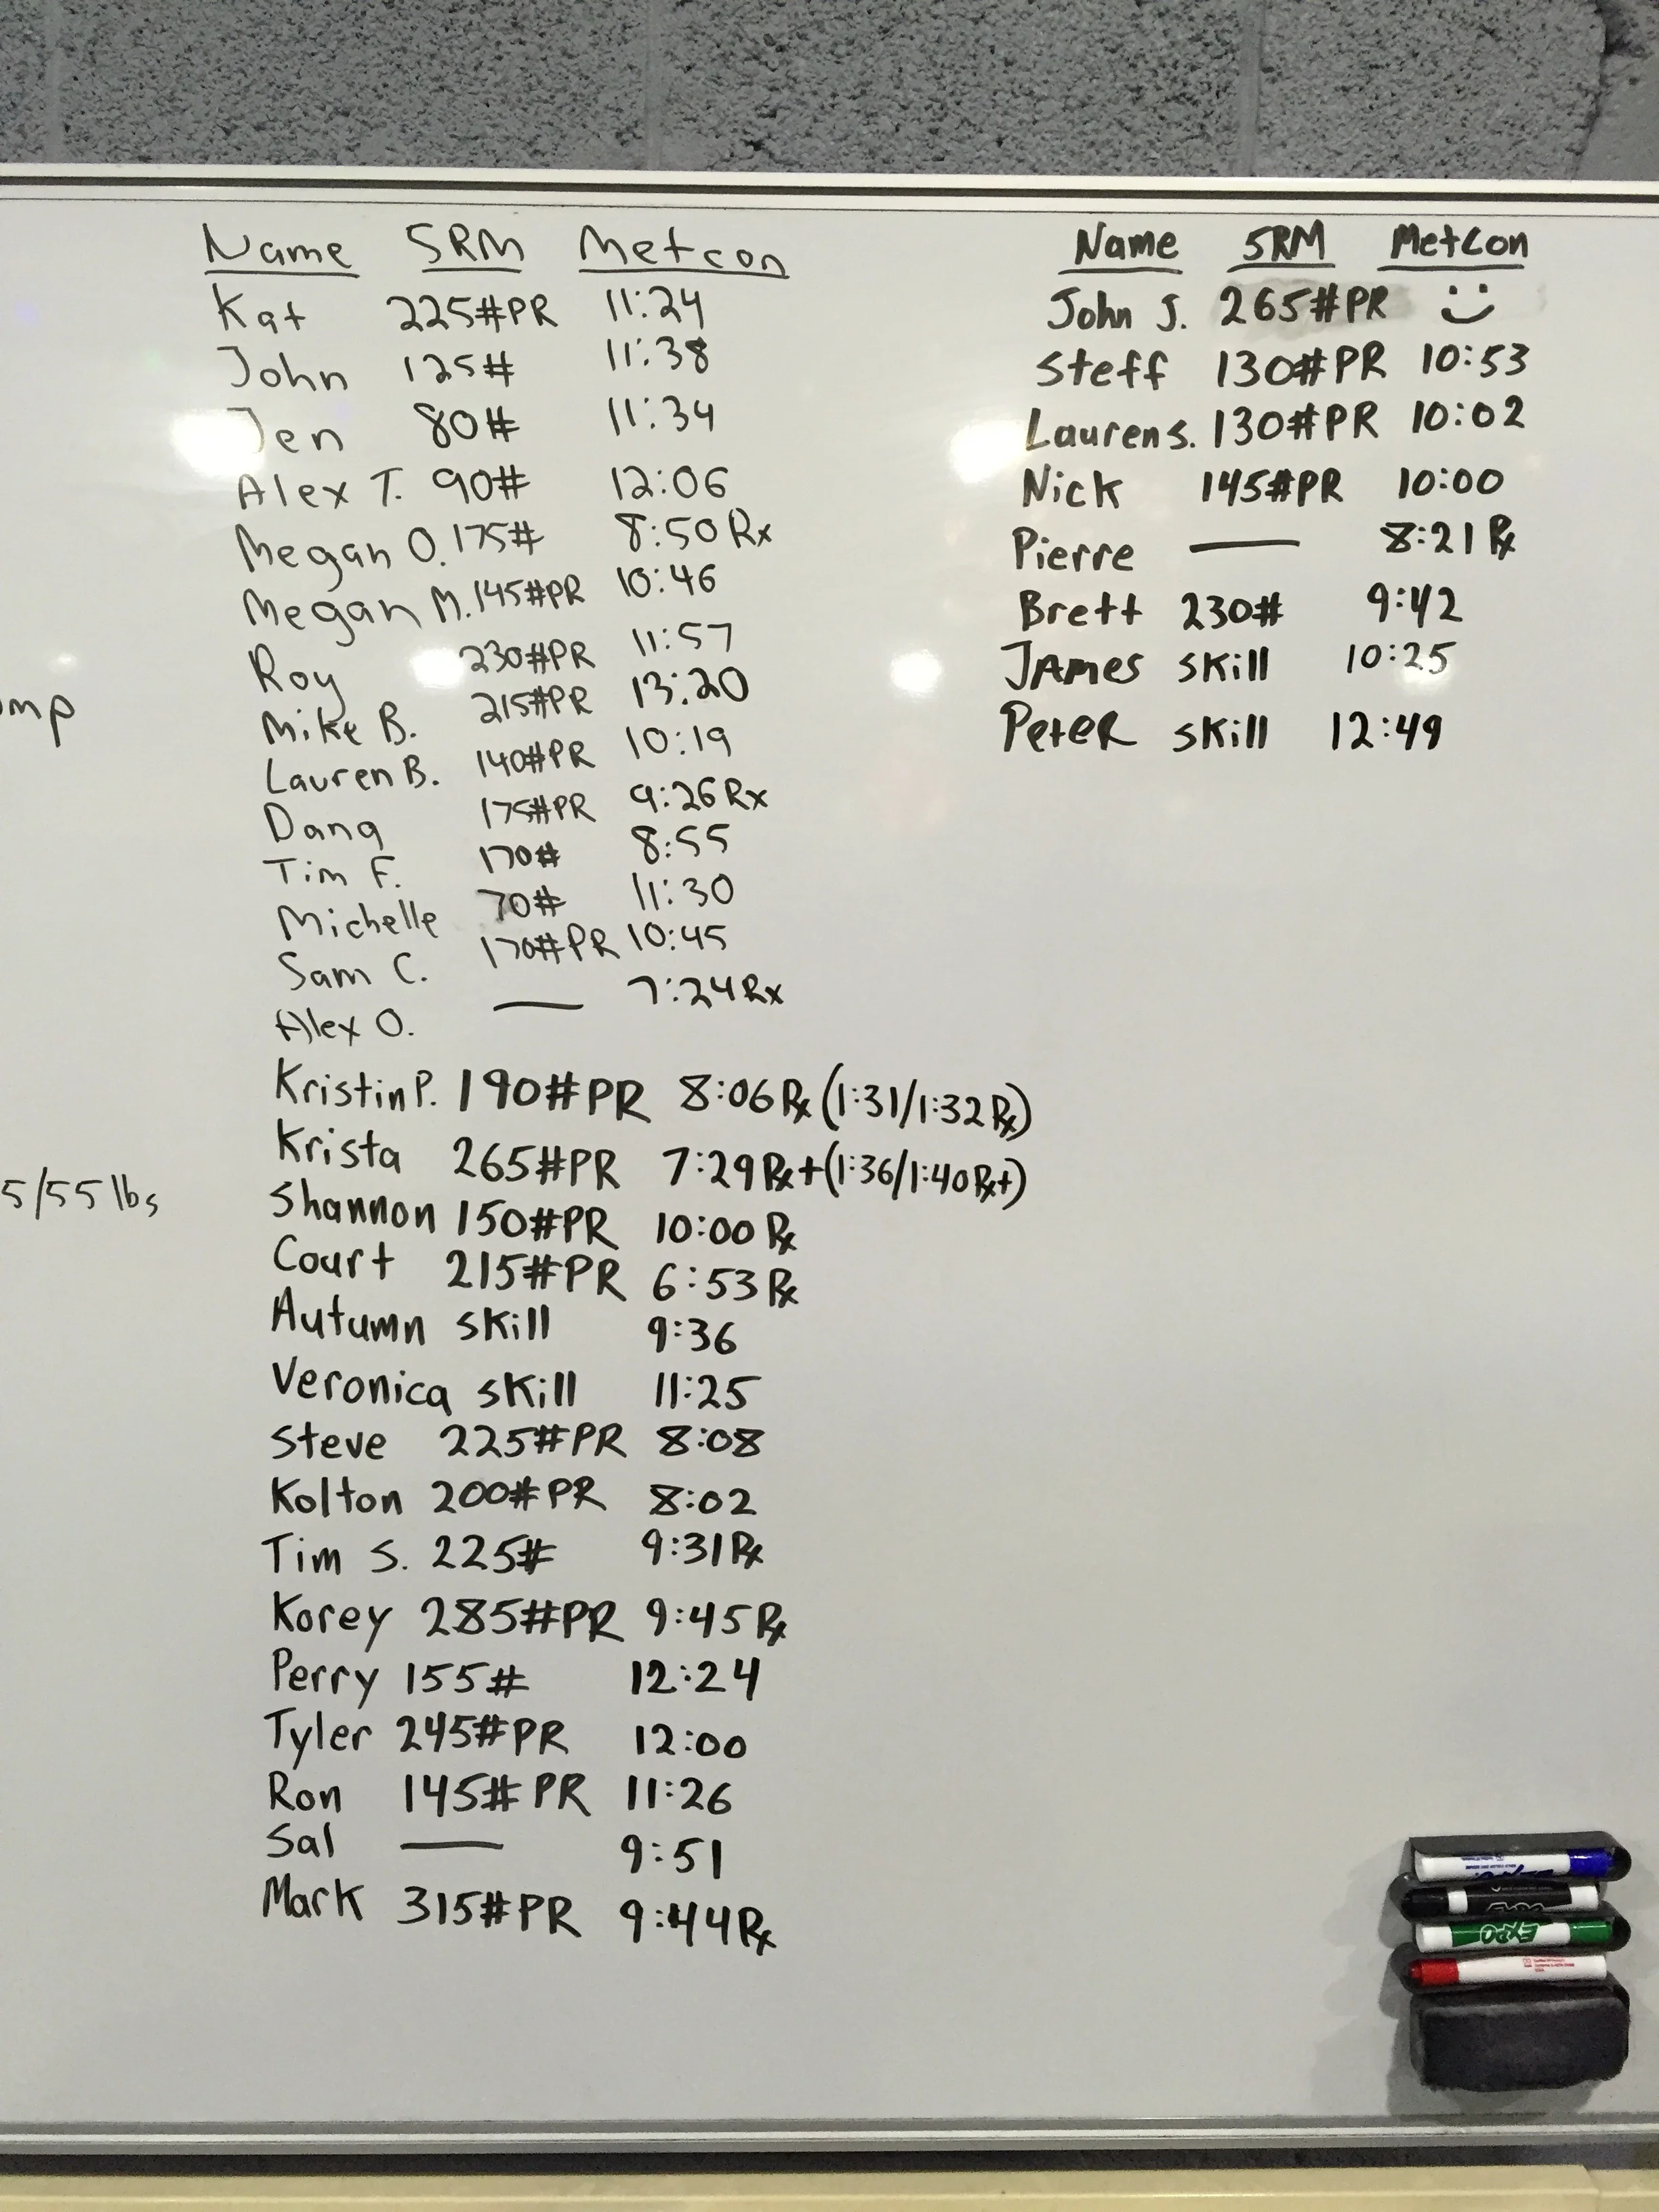 Name 5RM Metcon
Kat 225#PR 11:24
John 125# 11:38
Jen 80# 11:34
Alex T. 90# 12:06
Megan O. 175# 8:50 Rx
Megan M. 145#PR 10:46
Roy 230#PR 11:57
Mike B. 215#PR 13:20
Lauren B. 140#PR 10:19
Dana 175#PR 9:26 Rx
Tim F. 170# 8:55
Michelle 70# 11:30
Sam C. 170#PR 10:45
Alex O. — 7:24 Rx
Kristin P. 190#PR 8:06 Rx (1:31/1:32 Rx)
Krista 265#PR 7:29 Rx+ (1:36/1:40 Rx+)
Shannon 150#PR 10:00 Rx
Court 215#PR 6:53 Rx
Autumn skill 9:36
Veronica skill 11:25
Steve 225#PR 8:08
Kolton 200#PR 8:02
Tim S. 225# 9:31 Rx
Korey 285#PR 9:45 Rx
Perry 155# 12:24
Tyler 245#PR 12:00
Ron 145# PR 11:26
Sal — 9:51
Mark 315#PR 9:44 Rx
Name 5RM MetCon
John J. 265#PR
Steff 130#PR 10:53
Lauren S. 130#PR 10:02
Nick 145#PR 10:00
Pierre — 8:21 Rx
Brett 230# 9:42
JAmes skill 10:25
PeteR skill 12:49
mp
5/55 lbs
EXPO